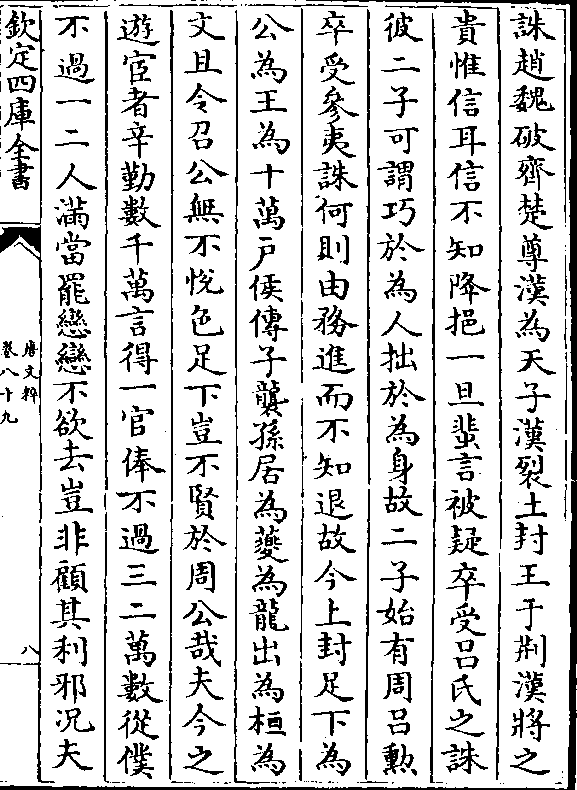 誅趙魏破齊楚尊漢為天子漢裂土封王于荆漢將之
貴惟信耳信不知降挹一旦蜚言被疑卒受吕氏之誅
彼二子可謂巧於為人拙於為身故二子始有周吕勲
卒受參夷誅何則由務進而不知退故今上封足下為
公為王為十萬戸侯傳子襲孫居為夔為龍出為桓為
文且令召公無不悦色足下豈不賢於周公哉夫今之
遊宦者辛勤數千萬言得一官俸不過三二萬數從僕
不過一二人滿當罷戀戀不欲去豈非顧其利邪况夫
欽定四庫全書
唐文粹
卷八十九
八